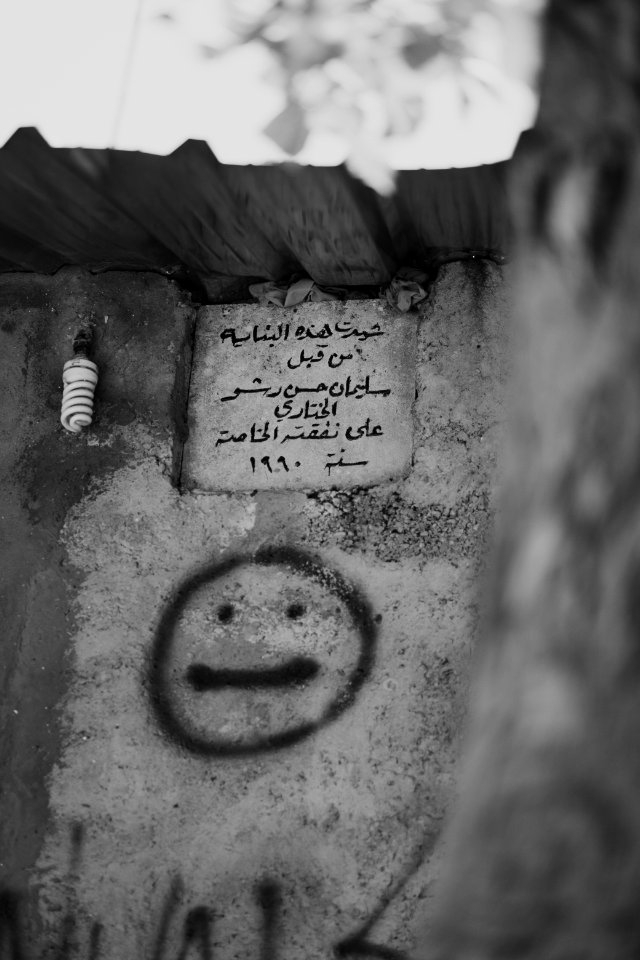 شيدت هذه البناية
من قبل
سليمان حسن رشو
الختاري
على نفقته الخاصة
سنة ١٩٩٠